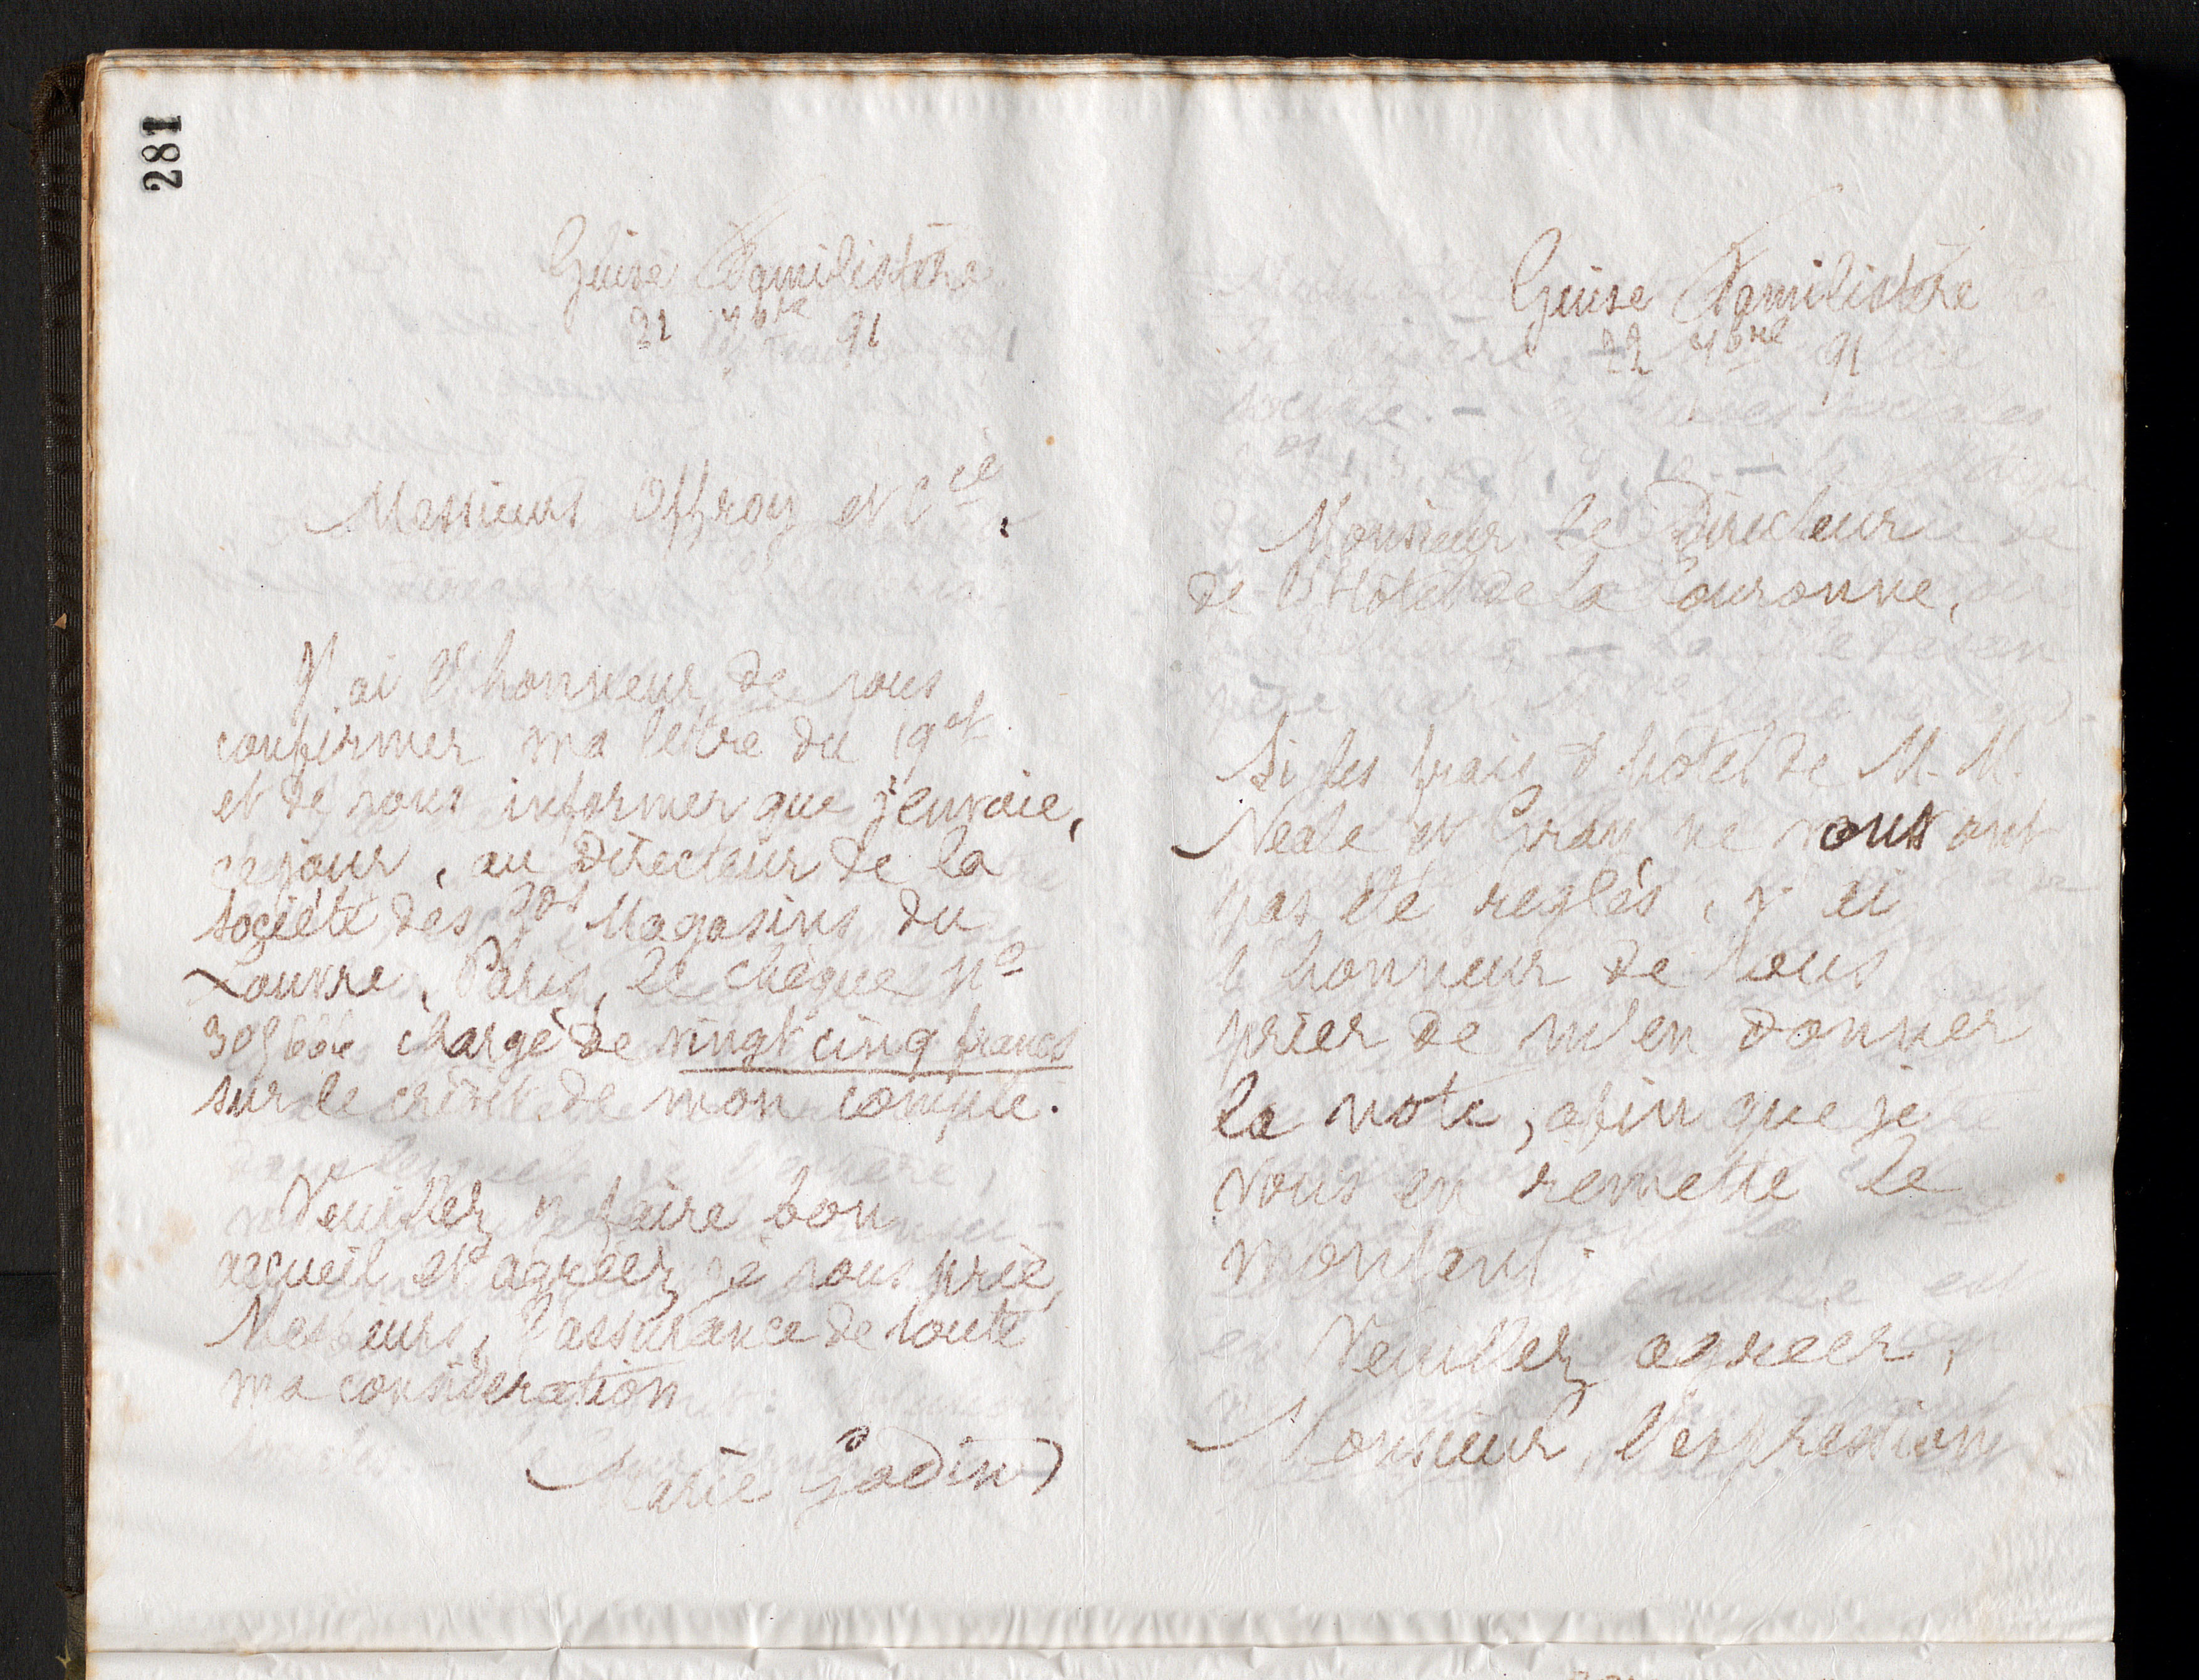 281
Guise Familistère
21 7bre 91
Messieurs Offroy et Cie,
J'ai l'honneur de vous
confirmer ma lettre du 19 ct
et de vous informer que j'envoie,
ce jour, au Directeur de la
société des gds Magasins du
Louvre, Paris, le chèque no
chargé de vingt cinq francs
sur le crédit de mon compte.
Veuillez y faire bon
accueil et agréer, je vous prie,
Messieurs, l'assurance de toute
ma considération
Marie Godin
Guise Familistère
22 7bre 91
Monsieur le Directeur
de l'Hôtel de la Couronne,
Si les frais d'hôtel de M. M.
Neale et ne vous ont
pas été réglés, j'ai
l'honneur de vous
prier de m'en donner
la note, afin que je
vous en remette le
montant.
Veuillez agréer,
Monsieur, l'expression